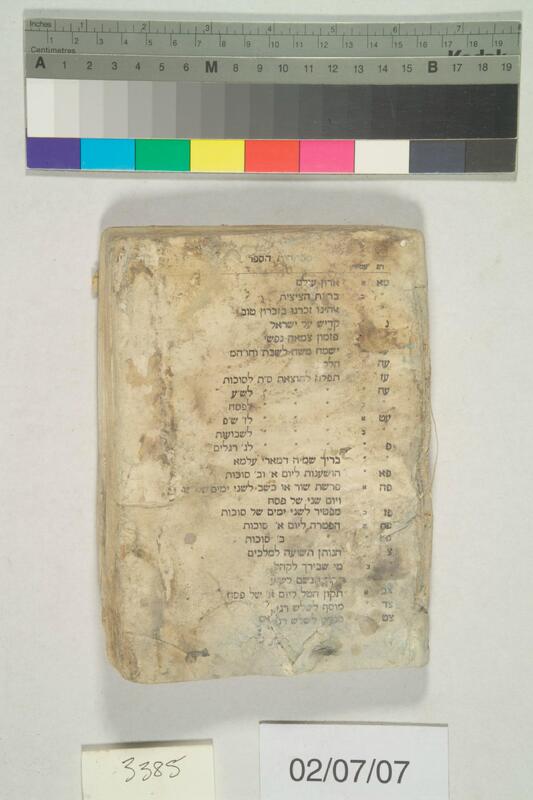 Inches 1 2 3 4 5 6 7
Centimetres 1 2 3 4 5 6 7 8 9 10 11 12 13 14 15 16 17 18 19
A 1 2 3 4 5 6 M 8 9 10 11 12 13 14 15 B 17 18 19
הספר
דף
אדון עולם
ברכת הציצית
אלהינו זכרנו בזכרון טוב
קדיש על ישראל
פזמון צמאה נפשי
ישמח משה לשבת
עה הלל
עז תפלה להוצאת ס״ת לסוכות
עח לש״ע
לפסח
עט לז׳ ש״פ
לשבועות
פ לג׳ רגלים
בריך שמיה דמארי עלמא
פא הושענות ליום א׳ וב׳ סוכות
פה פרשת שור או כשב לשני ימים
ויום שני של פסח
מפטיר לשני ימים של סוכות
הפטרה ליום א׳ סוכות
ב׳ סוכות
צ הנותן תשועה למלכים
מי שבירך לקהל
גשם לש״ע
צב תקון הטל ליום א׳ של פסח
צד מוסף לשלש רגלים
צט
3385
02/07/07